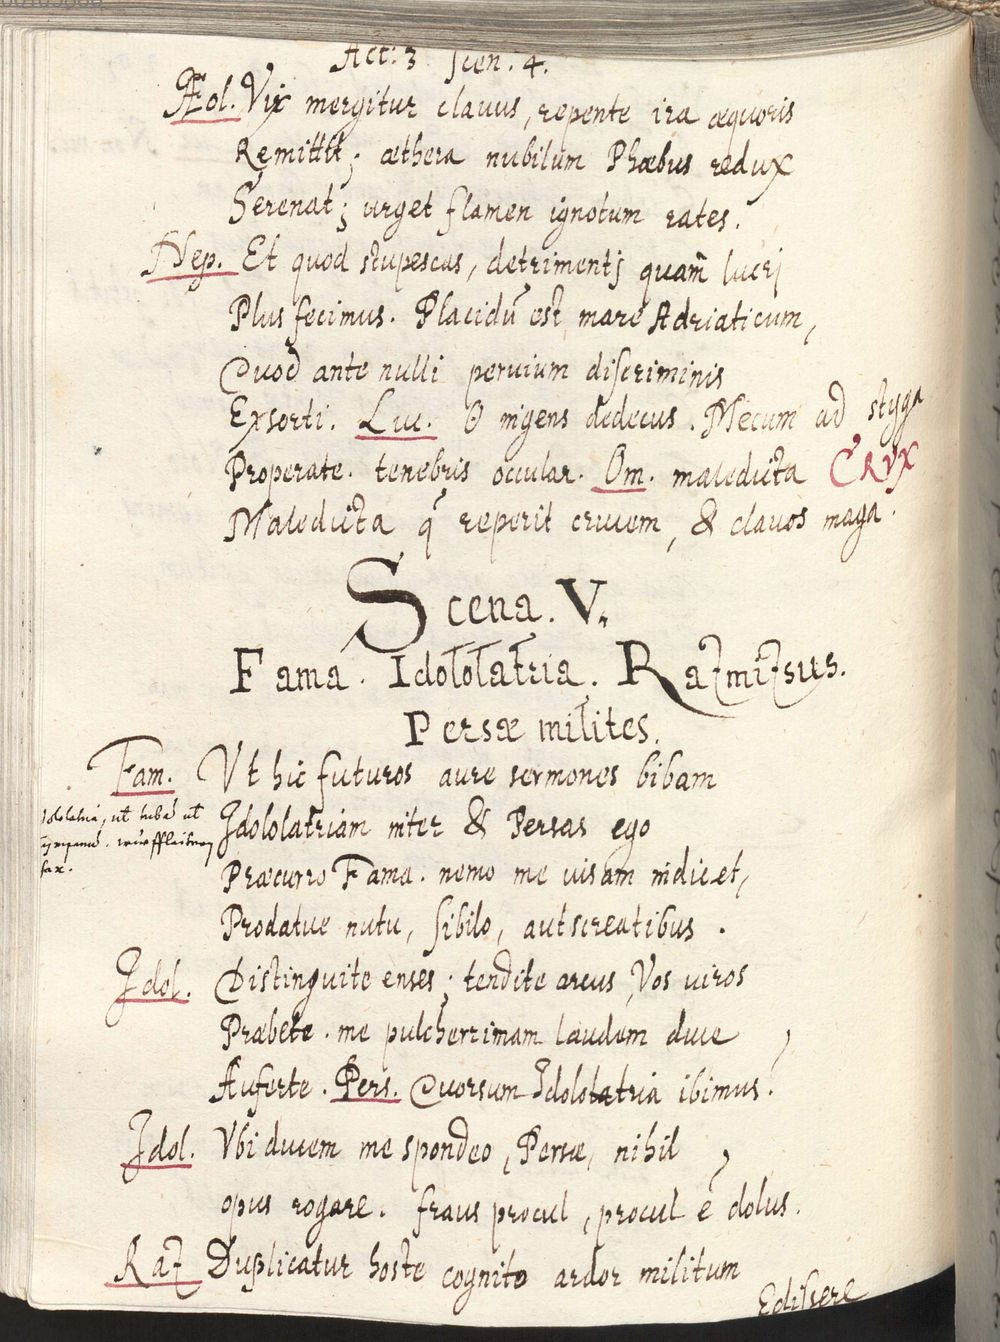 Act: 3 Scen. 4.
Æol. Vix mergitur clauus, repente ira æquoris
Remittit; æthera nubilum Phœbus redux
Serenat; urget flamen ignotum rates.
Nep. Et quod stupescas, detrimentj quam̃ lucrj
Plus fecimus. Placidũ est mare Adriaticum,
Quod ante nulli peruium discriminis
Exsorti. Luc. O ingens dedecus. Mecum ad styga
Properate. tenebris occular. Om. maledicta CRVX
Maledicta q̃ reperit crucem, & clauos maga.
Scena. V.
Fama. Idololatria. Razmizsus.
Persæ milites.
Fam. Vt hic futuros aure sermones bibam
Idololatriam inter & Persas ego
Præcurro Fama. nemo me uisam indicet,
Prodatue nutu, sibilo, aut screatibus.
Idol. Distinguite enses; tendite arcus, Vos uiros
Præbete. me pulcherrimam laudem duce
Auferte. Pers. Quorsum Idololatria ibimus?
Idol. Vbi ducem me spondeo, Persæ, nihil
opus rogare. fraus procul, procul ẽ dolus.
Raz Duplicatur hoste cognito ardor militum
Edissere